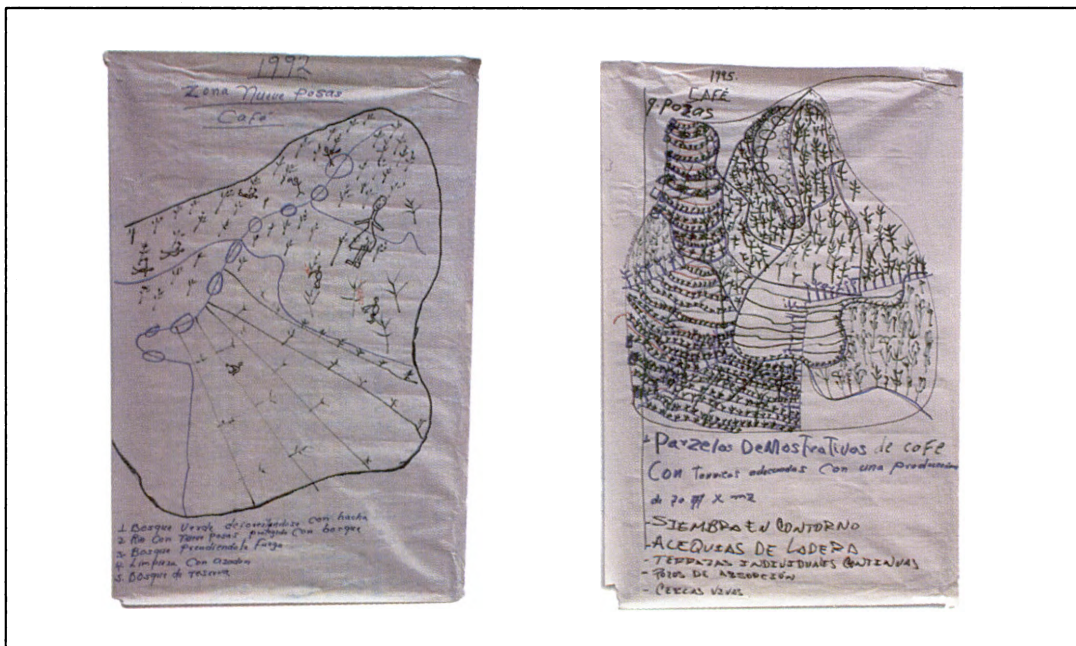 1992
Zona Nueve Posas
Café
1. Bosque Verde con hacha
2. Rio Con Nueve posas protegido con bosque
3. Bosque Prendiendole fuego
4. Limpieza Con azadon
5. Bosque de reserva
1995.
CAFÉ
9. Pozas
Parzelas DeMostrativas de cofe
Con Tecnicas adecuadas Con una produccion
de 70 X mz
- SIEMBRA EN CONTORNO
- ACEQUIAS DE LADERA
- TERRAZAS INDIVIDUALES CONTINUAS
- POZOS DE ABSORCIÓN
- CERCAS VIVAS